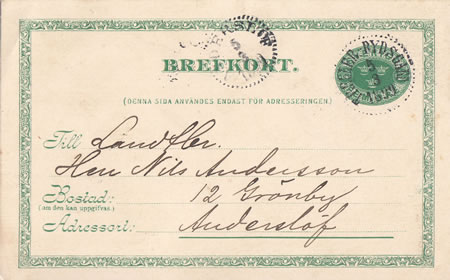 BREFKORT.
(DENNA SIDA ANVÄNDES ENDAST FÖR ADRESSERINGEN.)
Till Landtbr.
Herr Nils Andersson
Bostad: 12 Grönby
(om den kan uppgifvas.)
Adressort: Anderslöf